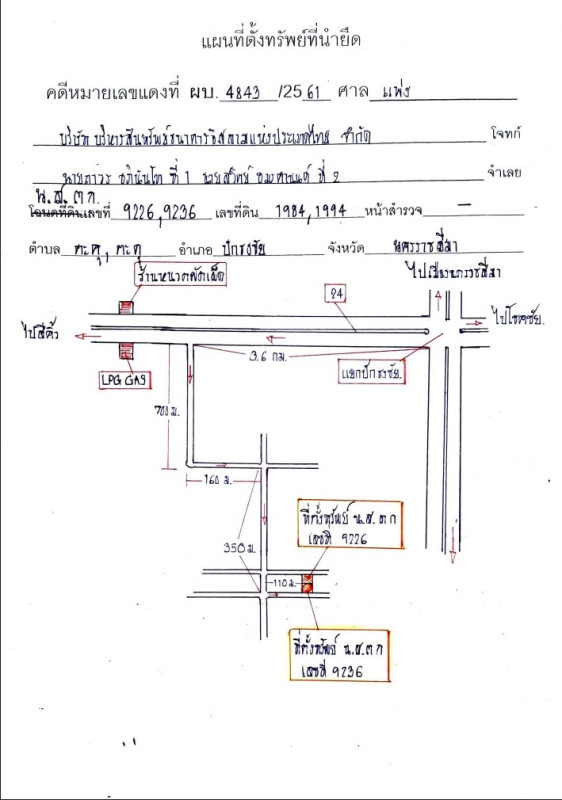 แผนที่ตั้งทรัพย์ที่นำยึด
คดีหมายเลขแดงที่ ผบ. 4843 /25 61 ศาล แพ่ง
บริษัท บริหารสินทรัพย์ธนาคารอิสลามแห่งประเทศไทย จำกัด โจทก์
ที่ 1 ที่ 2 จำเลย
น.ส.๓ก.
โฉนดที่ดินเลขที่ 9226,9236 เลขที่ดิน 1984,1994 หน้าสำรวจ —
ตำบล ตะคุ, ตะคุ อำเภอ ปักธงชัย จังหวัด นครราชสีมา
ไปเมืองนครราชสีมา
ร้านหนวดตัดเล็ด
24
ไปสีคิ้ว
ไปโชคชัย.
3.6 กม.
แยกปักธงชัย.
LPG GAS
700 ม.
160 ม.
ที่ตั้งทรัพย์ น.ส.๓ก
เลขที่ 9226
350 ม.
110 ม.
ที่ตั้งทรัพย์ น.ส.๓ก
เลขที่ 9236